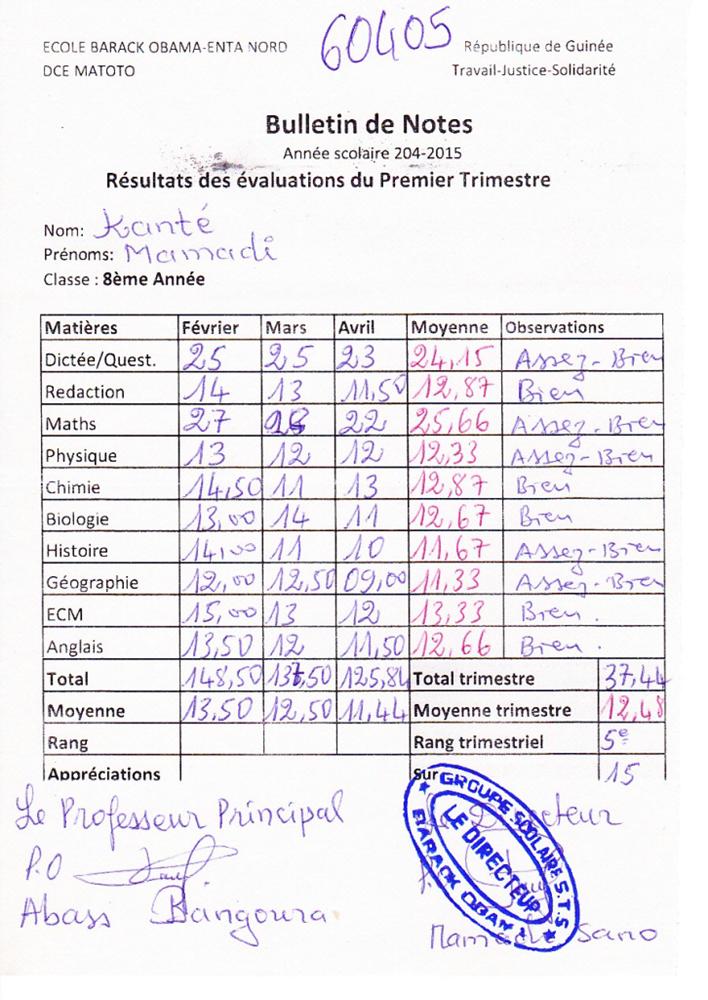 60405
ECOLE BARACK OBAMA-ENTA NORD République de Guinée
DCE MATOTO Travail-Justice-Solidarité
Bulletin de Notes
Année scolaire 204-2015
Résultats des évaluations du Premier Trimestre
Nom: Kanté
Prénoms: Mamadi
Classe : 8ème Année
Matières Février Mars Avril Moyenne Observations
Dictée/Quest. 25 25 23 24,15 Assez-Bien
Redaction 14 13 11,50 12,87 Bien
Maths 27 22 25,66 Assez-Bien
Physique 13 12 12 12,33 Assez-Bien
Chimie 14,50 11 13 12,87 Bien
Biologie 13,00 14 11 12,67 Bien
Histoire 14,00 11 10 11,67 Assez-Bien
Géographie 12,00 12,50 09,00 11,33 Assez-Bien
ECM 15,00 13 12 13,33 Bien.
Anglais 13,50 12 11,50 12,66 Bien.
Total 148,50 137,50 125,84 Total trimestre 37,44
Moyenne 13,50 12,50 11,44 Moyenne trimestre 12,48
Rang Rang trimestriel 5e
Appréciations Sur 15
Le Professeur Principal Le Directeur
P.O
Abass Bangoura
GROUPE SCOLAIRE S.T.S
LE DIRECTEUR
BARACK OBAMA
Mamadi Sano